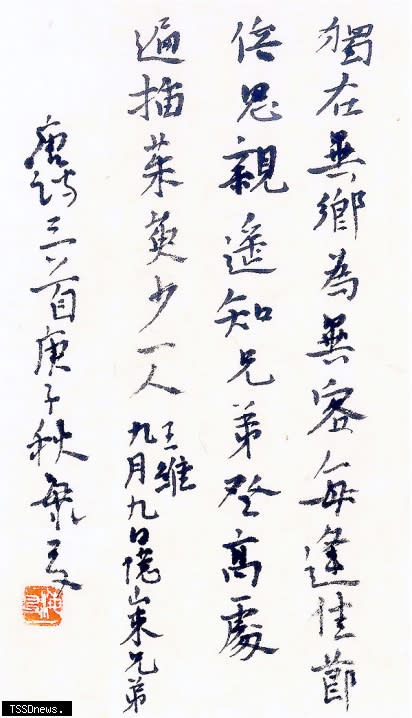 獨在異鄉為異客每逢佳節
倍思親遙知兄弟登高處
遍插茱萸少一人
王維
九月九日憶山東兄弟
唐詩三首庚子秋
TSSDnews.